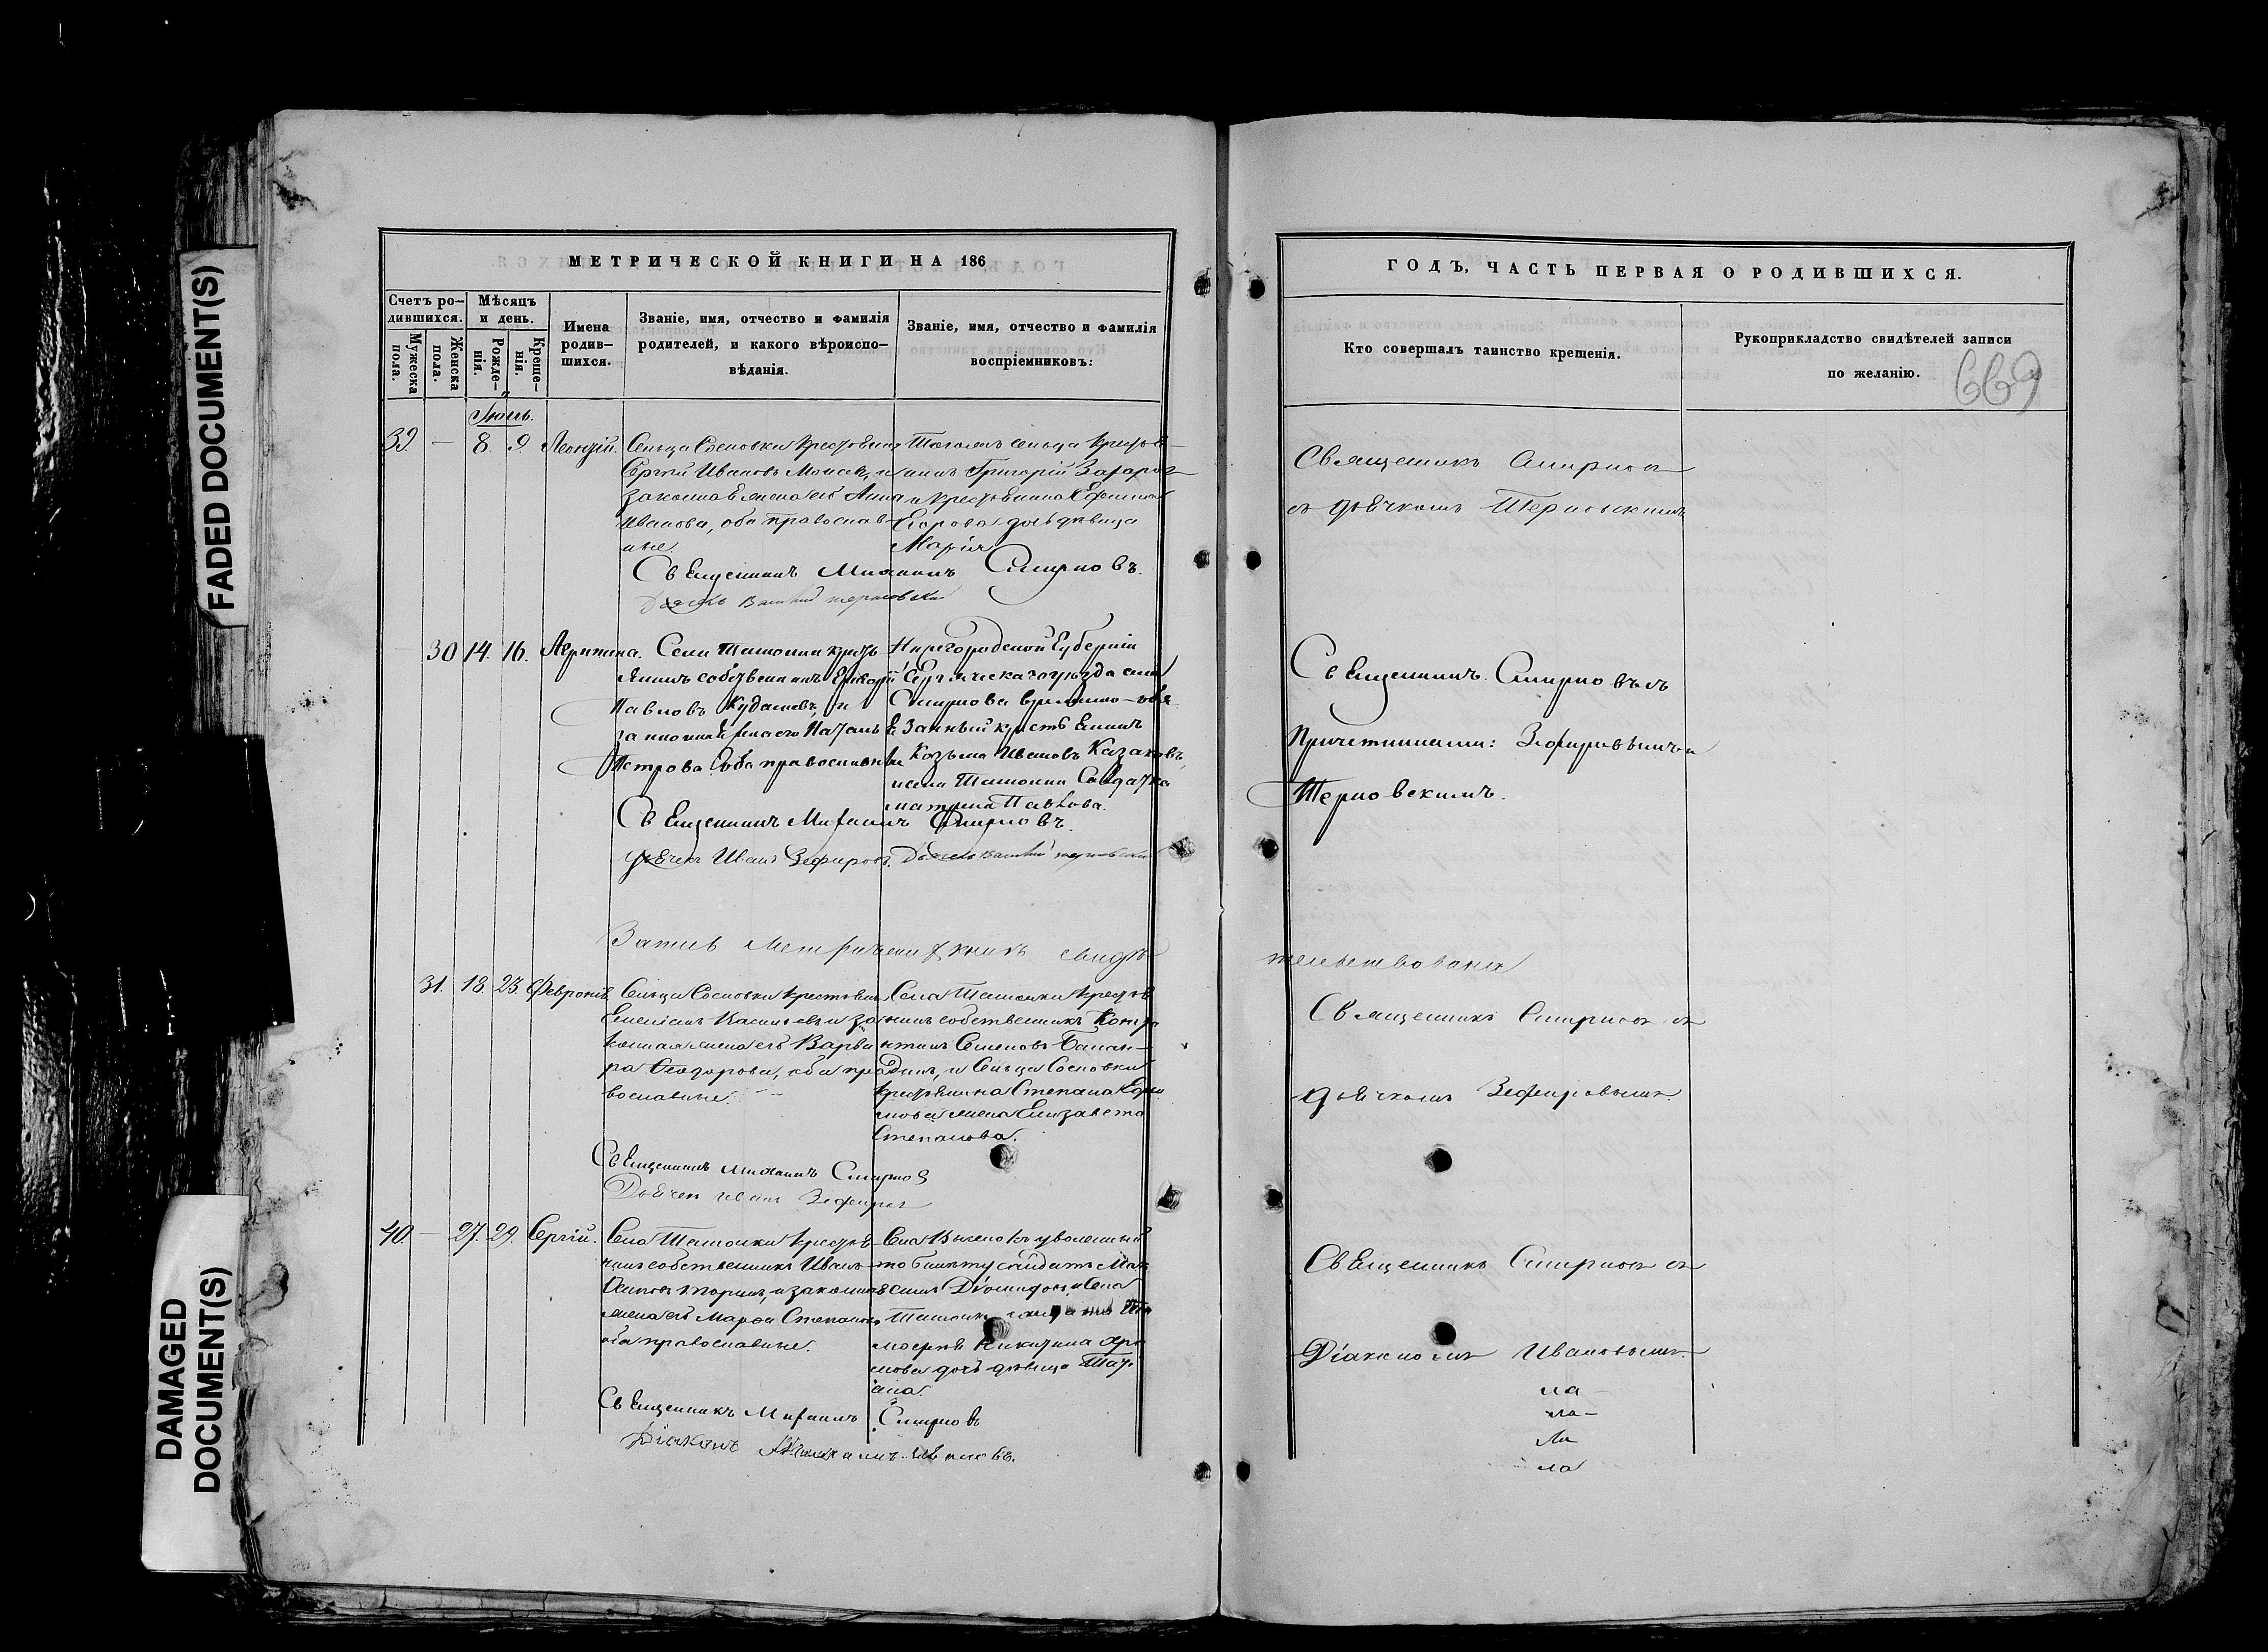 FADED DOCUMENT(S)
DAMAGED
DOCUMENT(S)
МЕТРИЧЕСКОЙ КНИГИ НА 186
Счетъ ро-
дившихся.
Мужеска
пола.
Женска
пола.
Мѣсяцъ
и день.
Рожде-
нія.
Креще-
нія.
Имена
родив-
шихся.
Званіе, имя, отчество и фамилія
родителей, и какого вѣроиспо-
вѣданія.
Званіе, имя, отчество и фамилія
воспріемниковъ:
Іюнь.
39. — 8. 9. Леонтій.
Сельца Сосновки крестьянинъ
Сергѣй Ивановъ Моисеев, и
законная жена его Анна
Иванова, оба православ-
ные.
Тогожъ сельца крестья-
нинъ Григорій Захаров
и крестьянина Ефима
Егорова дочь дѣвица
Марія
Священникъ Михаилъ Смирновъ.
Дьячекъ Василій Терновскій
30 14. 16. Агрипина.
Села Ташолки кресть-
янинъ собственникъ Григорій
Павловъ Кудашевъ, и
законная жена его Наталья
Петрова. Оба православные
Нижегородской Губерніи
Сергачскаго уѣзда села
Смирнова временно-обя-
занный крестьянинъ
Козьма Ивановъ Казаковъ,
и села Ташолки Солдатка
Матрена Павлова.
Священникъ Михаилъ Смирновъ.
дьячекъ Иванъ Зефировъ. Дьячекъ Василій Терновскій
Запись метрическихъ книгъ свидѣ
тельствована
31. 18. 23. Февронія.
Сельца Сосновки крестьянинъ
Емеліанъ Васильевъ и за-
конная жена его Варва-
ра Ѳеодорова, оба пра-
вославные.
Села Ташолки крестья-
нинъ собственникъ
Семеновъ
и Сельца Сосновки
крестьянина Степана
жена Елизавета
Степанова.
Священникъ Михаилъ Смирнов
Дьячек Иванъ Зефиров
40. — 27. 29. Сергій.
Села Ташолки крестья-
нинъ собственникъ Иванъ
и законная
жена его Марѳа Степанова
оба православные.
уволенный
по билету солдатъ
и Села
Ташолки
Никитина
дочь дѣвица Тать-
яна.
Священникъ Михаилъ Смирновъ
Діаконъ Ивановъ.
ГОДЪ, ЧАСТЬ ПЕРВАЯ О РОДИВШИХСЯ.
Кто совершалъ таинство крещенія.
Рукоприкладство свидѣтелей записи
по желанію.
669
Священникъ Смирнов
съ дьячкомъ Терновскимъ
Священникъ Смирновъ съ
Причетниками: Зефировымъ и
Терновскимъ.
Священникъ Смирнов съ
дьячкомъ Зефировымъ.
Священникъ Смирнов съ
Діакономъ Ивановымъ.
ла-
ла-
ла
ла